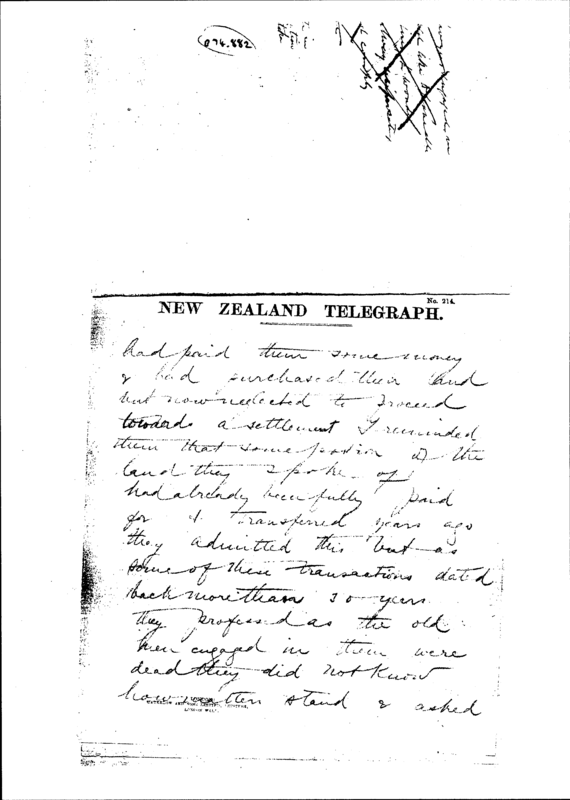 074.882
No. 214.
NEW ZEALAND TELEGRAPH.
had paid them some money
& had purchased their land
but now neglected to proceed
towards a settlement I reminded
them that some portion of the
land they spoke of
had already been fully paid
for & transferred years ago
they admitted this but as
some of these transactions dated
back more than 30 years
they professed as the old
men engaged in them were
dead they did not know
how matters stand & asked